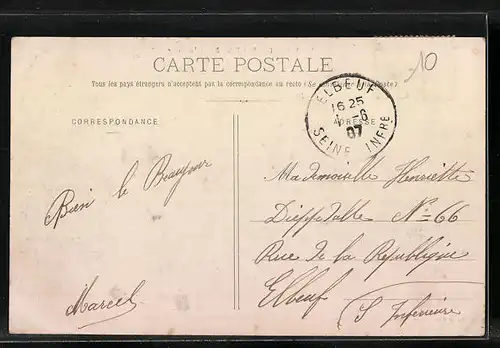 10
CARTE POSTALE
Tous les pays étrangers n'acceptent pas la correspondance au recto (Se à la Poste)
CORRESPONDANCE
ADRESSE
ELBEUF
16 25
4 - 6
07
SEINE INFRE
Bien le Bonjour
Marcel
Mademoiselle Henriette
Dieppedalle N=66
Rue de la République
Elbeuf
S Inférieure